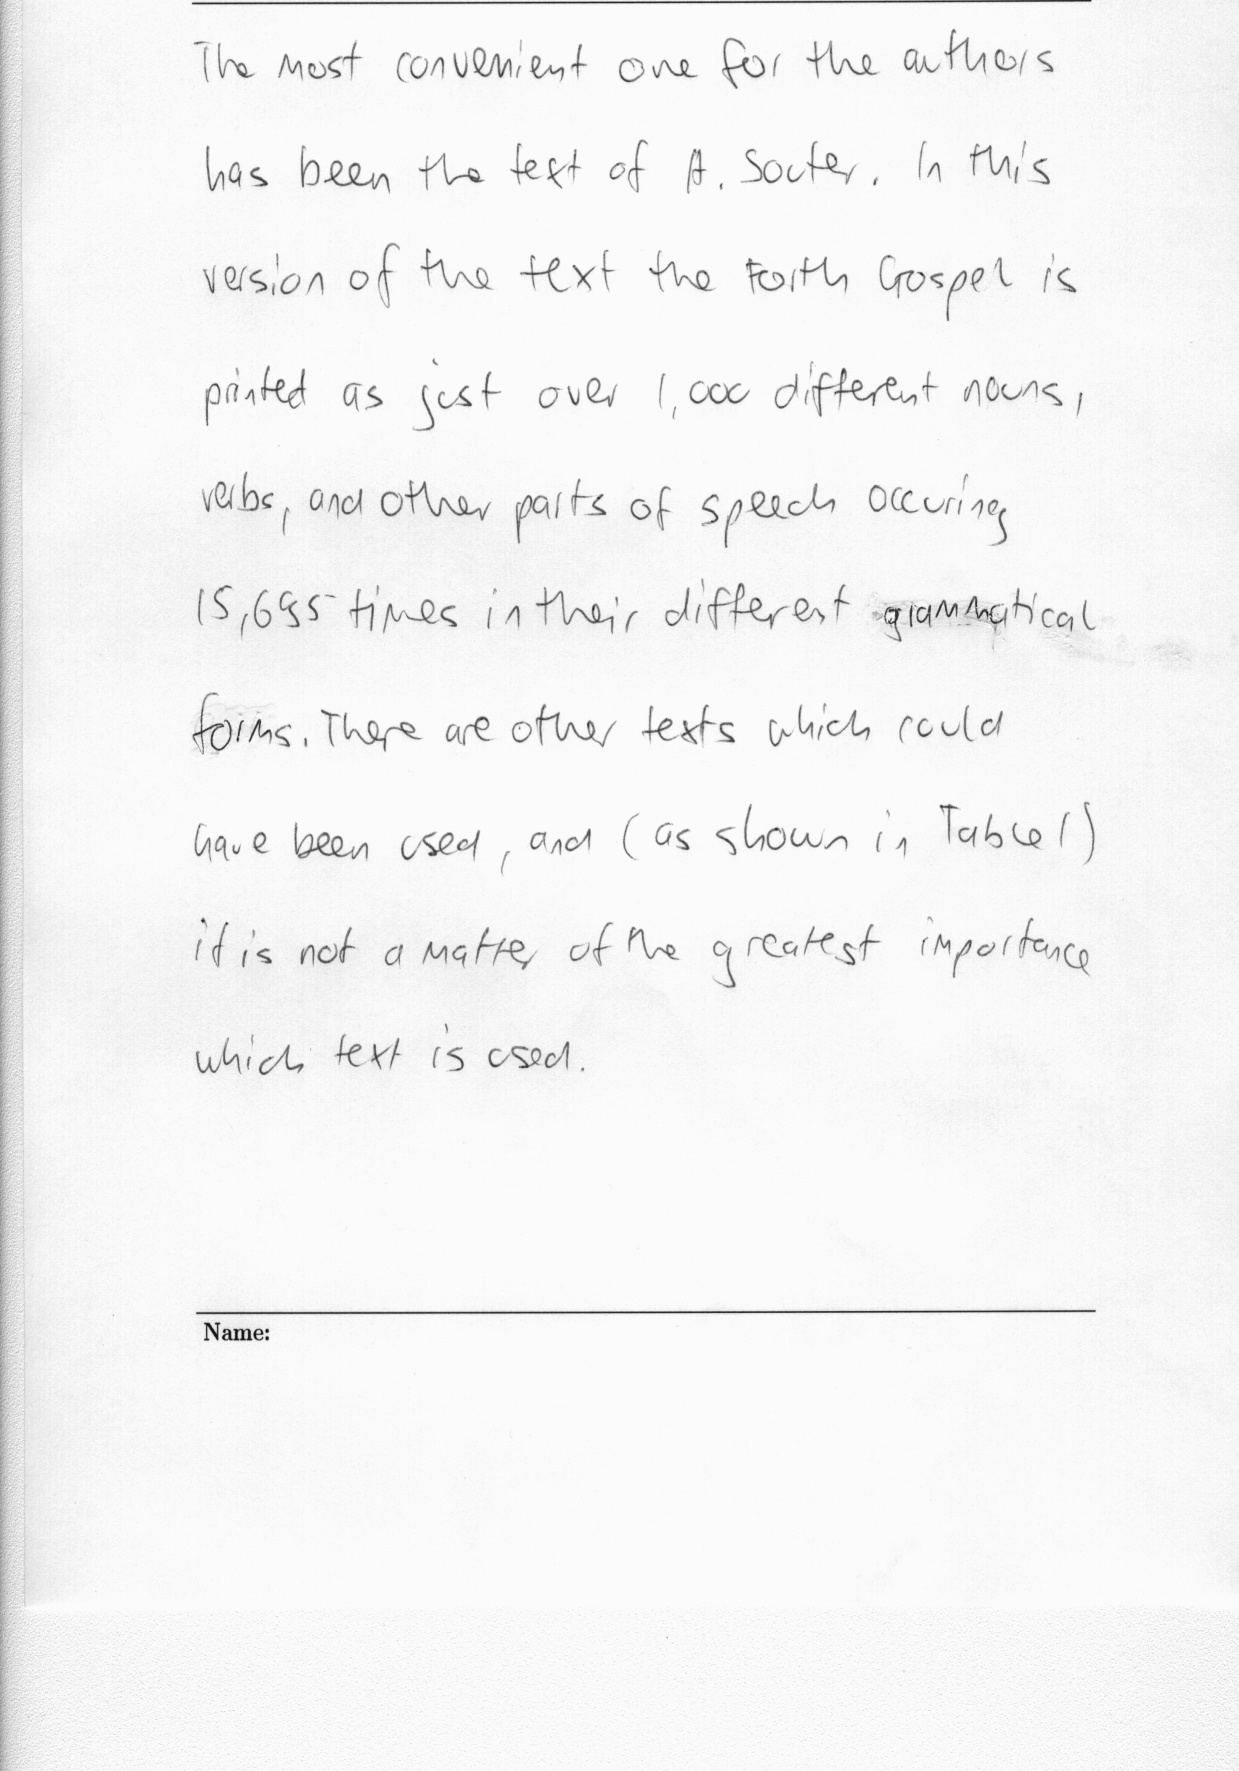 The most convenient one for the authors
has been the text of A. Souter. In this
version of the text the Forth Gospel is
printed as just over 1,000 different nouns,
verbs, and other parts of speech occuring
15,695 times in their different grammatical
forms. There are other texts which could
have been used, and (as shown in Table 1)
it is not a matter of the greatest importance
which text is used.
Name: